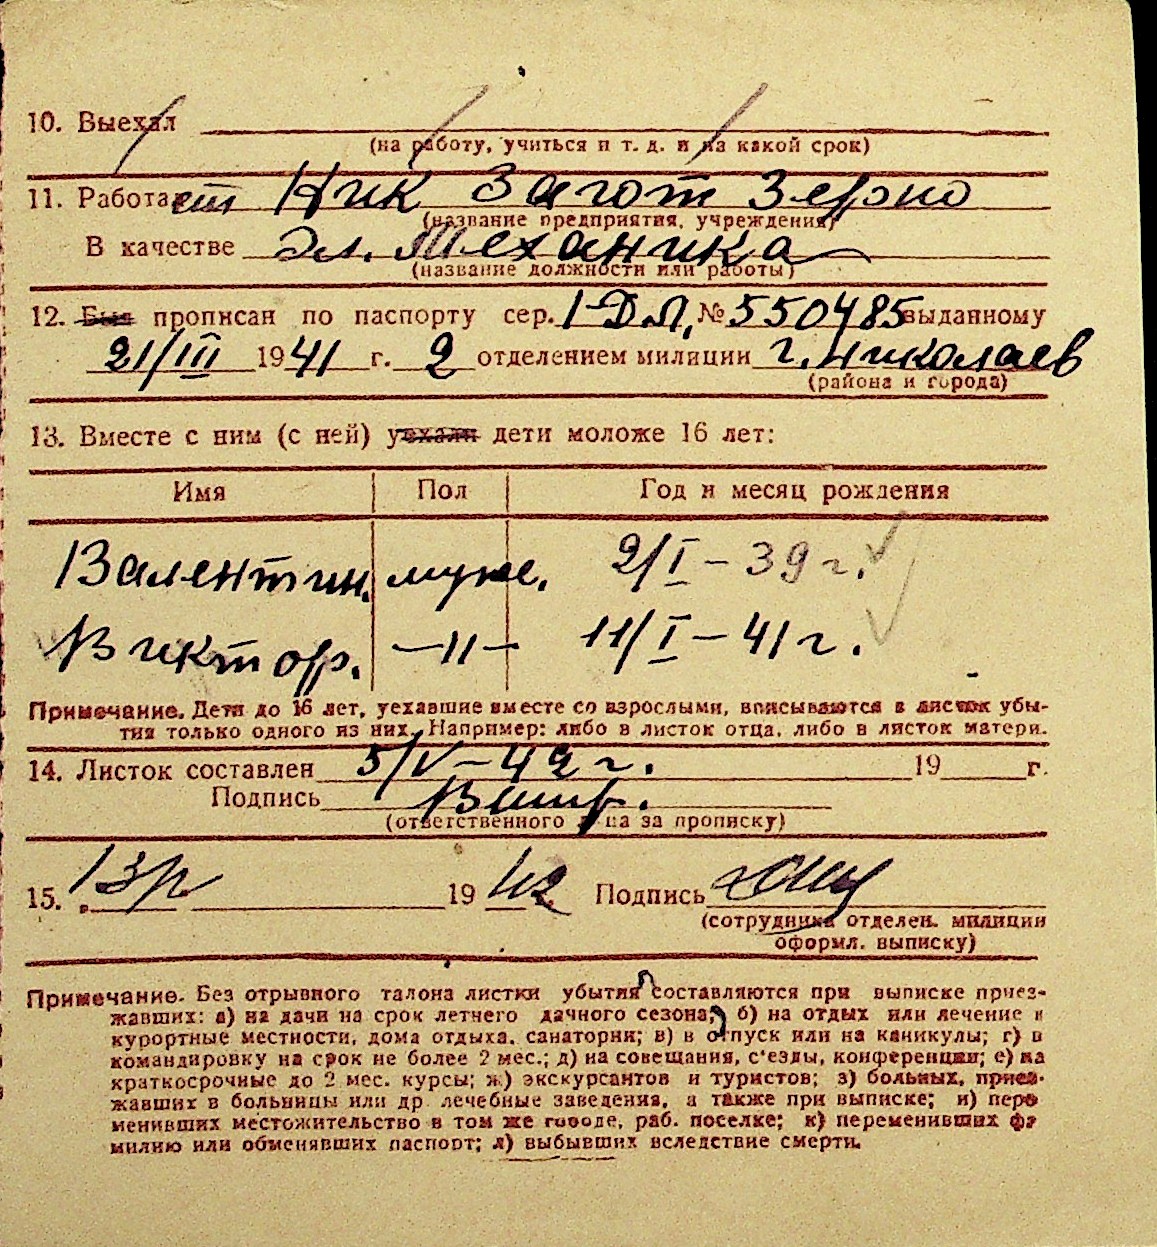 10. Выехал
(на работу, учиться и т. д. и на какой срок)
11. Работает Ник Загот Зерно
(название предприятия, учреждения)
В качестве Эл. Механика
(название должности или работы)
12. Был прописан по паспорту сер. I-ДЛ, № 550485 выданному
21/III 1941 г. 2 отделением милиции г. Николаев
(района и города)
13. Вместе с ним (с ней) уехали дети моложе 16 лет:
Имя Пол Год и месяц рождения
Валентин. муж. 2/I – 39 г.
Виктор. –11– 11/I – 41 г.
Примечание. Дети до 16 лет, уехавшие вместе со взрослыми, вписываются в листок убы-
тия только одного из них. Например: либо в листок отца, либо в листок матери.
14. Листок составлен 5/V – 42 г. 19 г.
Подпись
(ответственного лица за прописку)
15. 19 42 Подпись
(сотрудника отделен. милиции
оформл. выписку)
Примечание. Без отрывного талона листки убытия составляются при выписке приез-
жавших: а) на дачи на срок летнего дачного сезона; б) на отдых или лечение в
курортные местности, дома отдыха, санатории; в) в отпуск или на каникулы; г) в
командировку на срок не более 2 мес.; д) на совещания, с'езды, конференции; е) на
краткосрочные до 2 мес. курсы; ж) экскурсантов и туристов; з) больных, приез-
жавших в больницы или др лечебные заведения, а также при выписке; и) пере
менивших местожительство в том же городе, раб. поселке; к) переменивших фа
милию или обменявших паспорт; л) выбывших вследствие смерти.